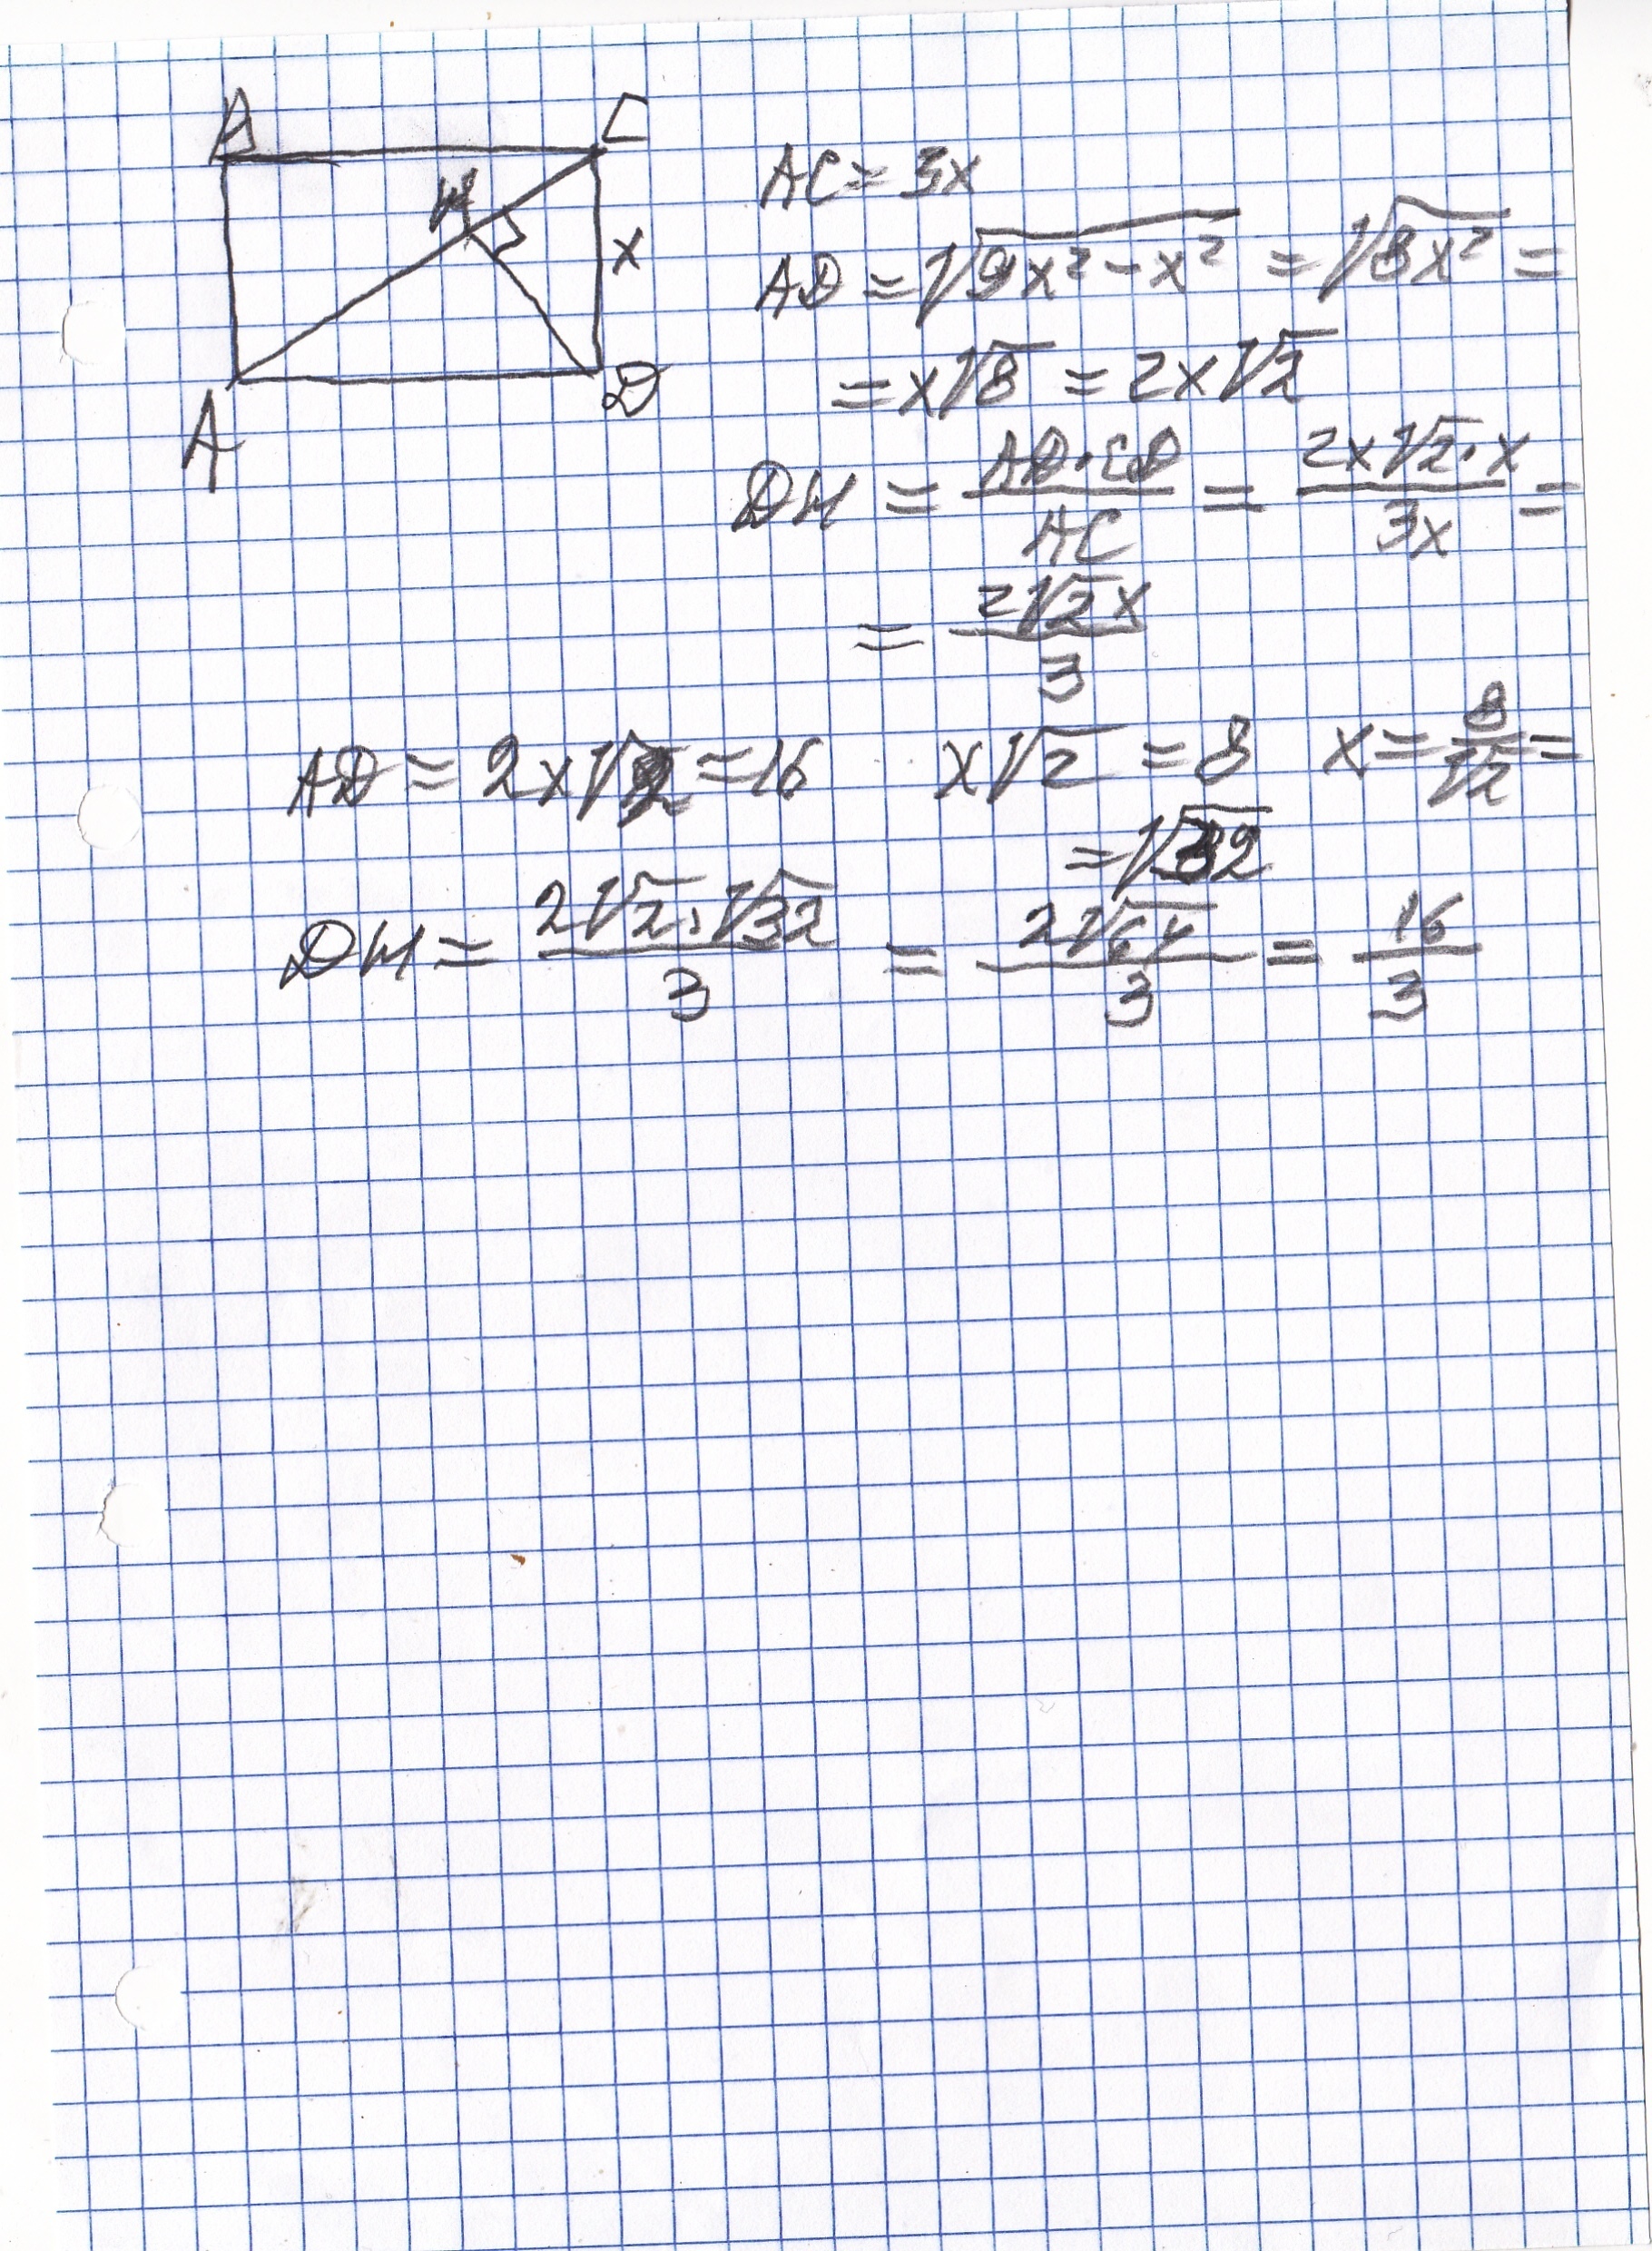 B C
H
x
A D
AC = 3x
AD = √(9x² - x²) = √(8x²) =
= x√8 = 2x√2
DH = (AD · CD)/AC = (2x√2 · x)/3x =
= 2√2x/3
AD = 2x√2 = 16 x√2 = 8 x = 8/√2 =
= √32
DH = (2√2 · √32)/3 = 2√64/3 = 16/3